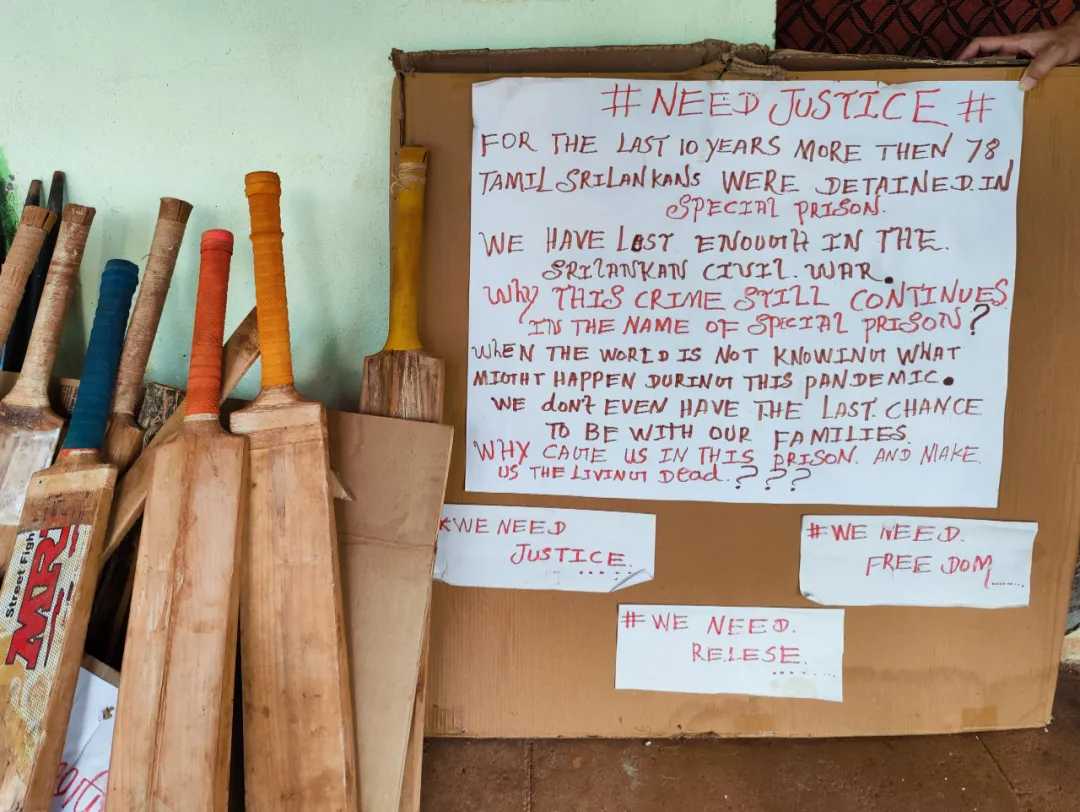 # NEED JUSTICE #
FOR THE LAST 10 YEARS MORE THEN 78
TAMIL SRILANKANS WERE DETAINED.IN
SPECIAL PRISON.
WE HAVE LOST ENOUGH IN THE.
SRILANKAN CIVIL.WAR.
WHY THIS CRIME STILL CONTINUES
IN THE NAME OF SPECIAL PRISON?
WHEN THE WORLD IS NOT KNOWING WHAT
MIGHT HAPPEN DURING THIS PANDEMIC.
WE don't EVEN HAVE THE LAST CHANCE
TO BE WITH OUR FAMILIES.
WHY CAUE US IN THIS PRISON. AND MAKE.
US THE LIVING Dead.???
WE NEED
JUSTICE......
#WE NEED.
FREEDOM......
#WE NEED.
RELESE......
Street Figh
MRI